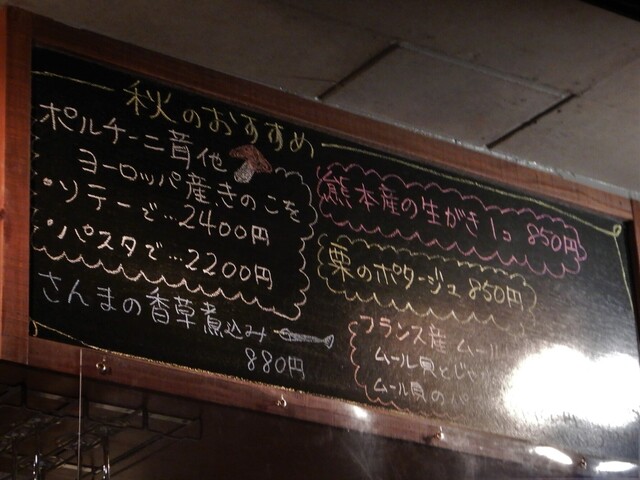 秋のおすすめ
ポルチーニ茸他
ヨーロッパ産きのこを
・ソテーで…2400円
・パスタで…2200円
さんまの香草煮込み
880円
熊本産の生がき1コ 850円
栗のポタージュ 850円
フランス産 ムール
ムール貝とじゃ
ムール貝のパ